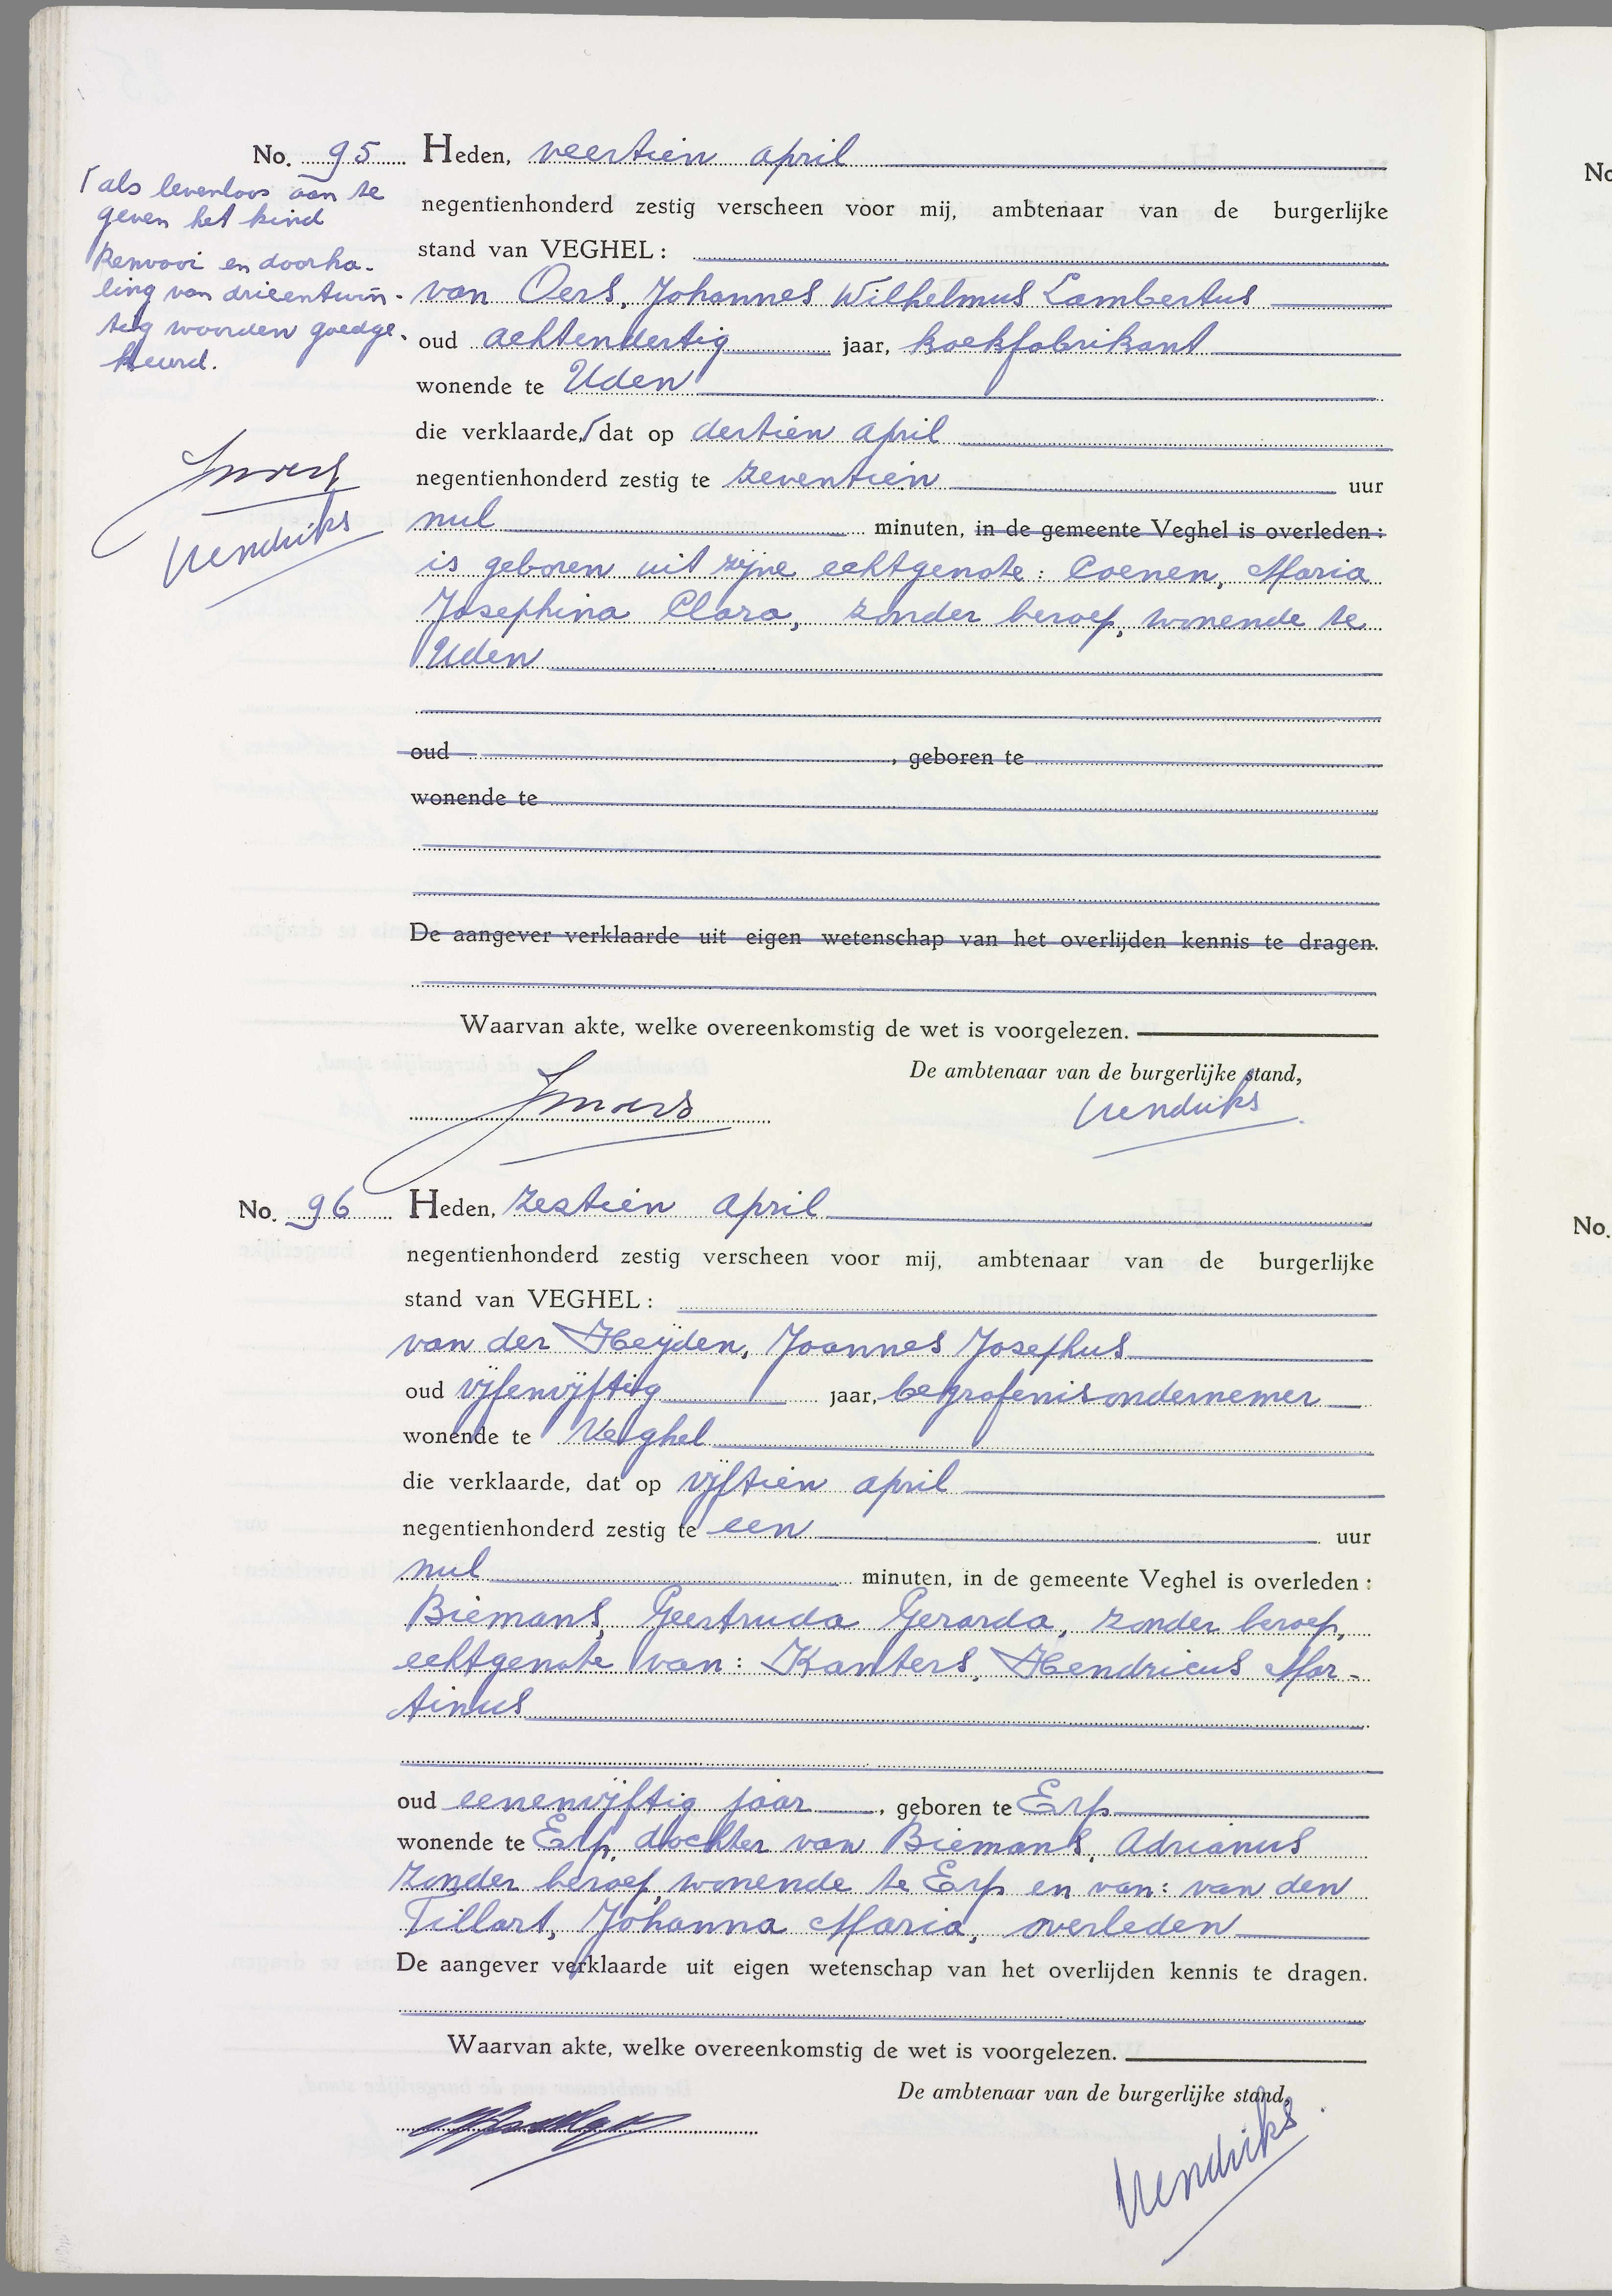 No. 95 Heden, veertien april
negentienhonderd zestig verscheen voor mij, ambtenaar van de burgerlijke
stand van VEGHEL:
van Oers, Johannes Wilhelmus Lambertus
oud achtendertig jaar, koekfabrikant
wonende te Uden
die verklaarde,⌈ dat op dertien april
negentienhonderd zestig te zeventien uur
nul minuten, in de gemeente Veghel is overleden:
is geboren uit zijne echtgenote: Coenen, Maria
Josephina Clara, zonder beroep, wonende te
Uden
oud , geboren te
wonende te
De aangever verklaarde uit eigen wetenschap van het overlijden kennis te dragen.
Waarvan akte, welke overeenkomstig de wet is voorgelezen.
De ambtenaar van de burgerlijke stand,
Hendriks
⌈ als levenloos aan te
geven het kind
Renvooi en doorha-
ling van drieëntwin-
tig woorden goedge-
keurd.
Hendriks
No. 96 Heden, zestien april
negentienhonderd zestig verscheen voor mij, ambtenaar van de burgerlijke
stand van VEGHEL:
van der Heijden, Joannes Josephus
oud vijfenvijftig jaar, begrafenisondernemer
wonende te Veghel
die verklaarde, dat op vijftien april
negentienhonderd zestig te een uur
nul minuten, in de gemeente Veghel is overleden:
Biemans, Geertruda Gerarda, zonder beroep,
echtgenote van: Kanters, Hendricus Mar-
tinus
oud eenenvijftig jaar, geboren te Erp
wonende te Erp, dochter van Biemans, Adrianus
zonder beroep, wonende te Erp en van: van den
Tillart, Johanna Maria, overleden
De aangever verklaarde uit eigen wetenschap van het overlijden kennis te dragen.
Waarvan akte, welke overeenkomstig de wet is voorgelezen.
De ambtenaar van de burgerlijke stand,
Hendriks
No.
No.